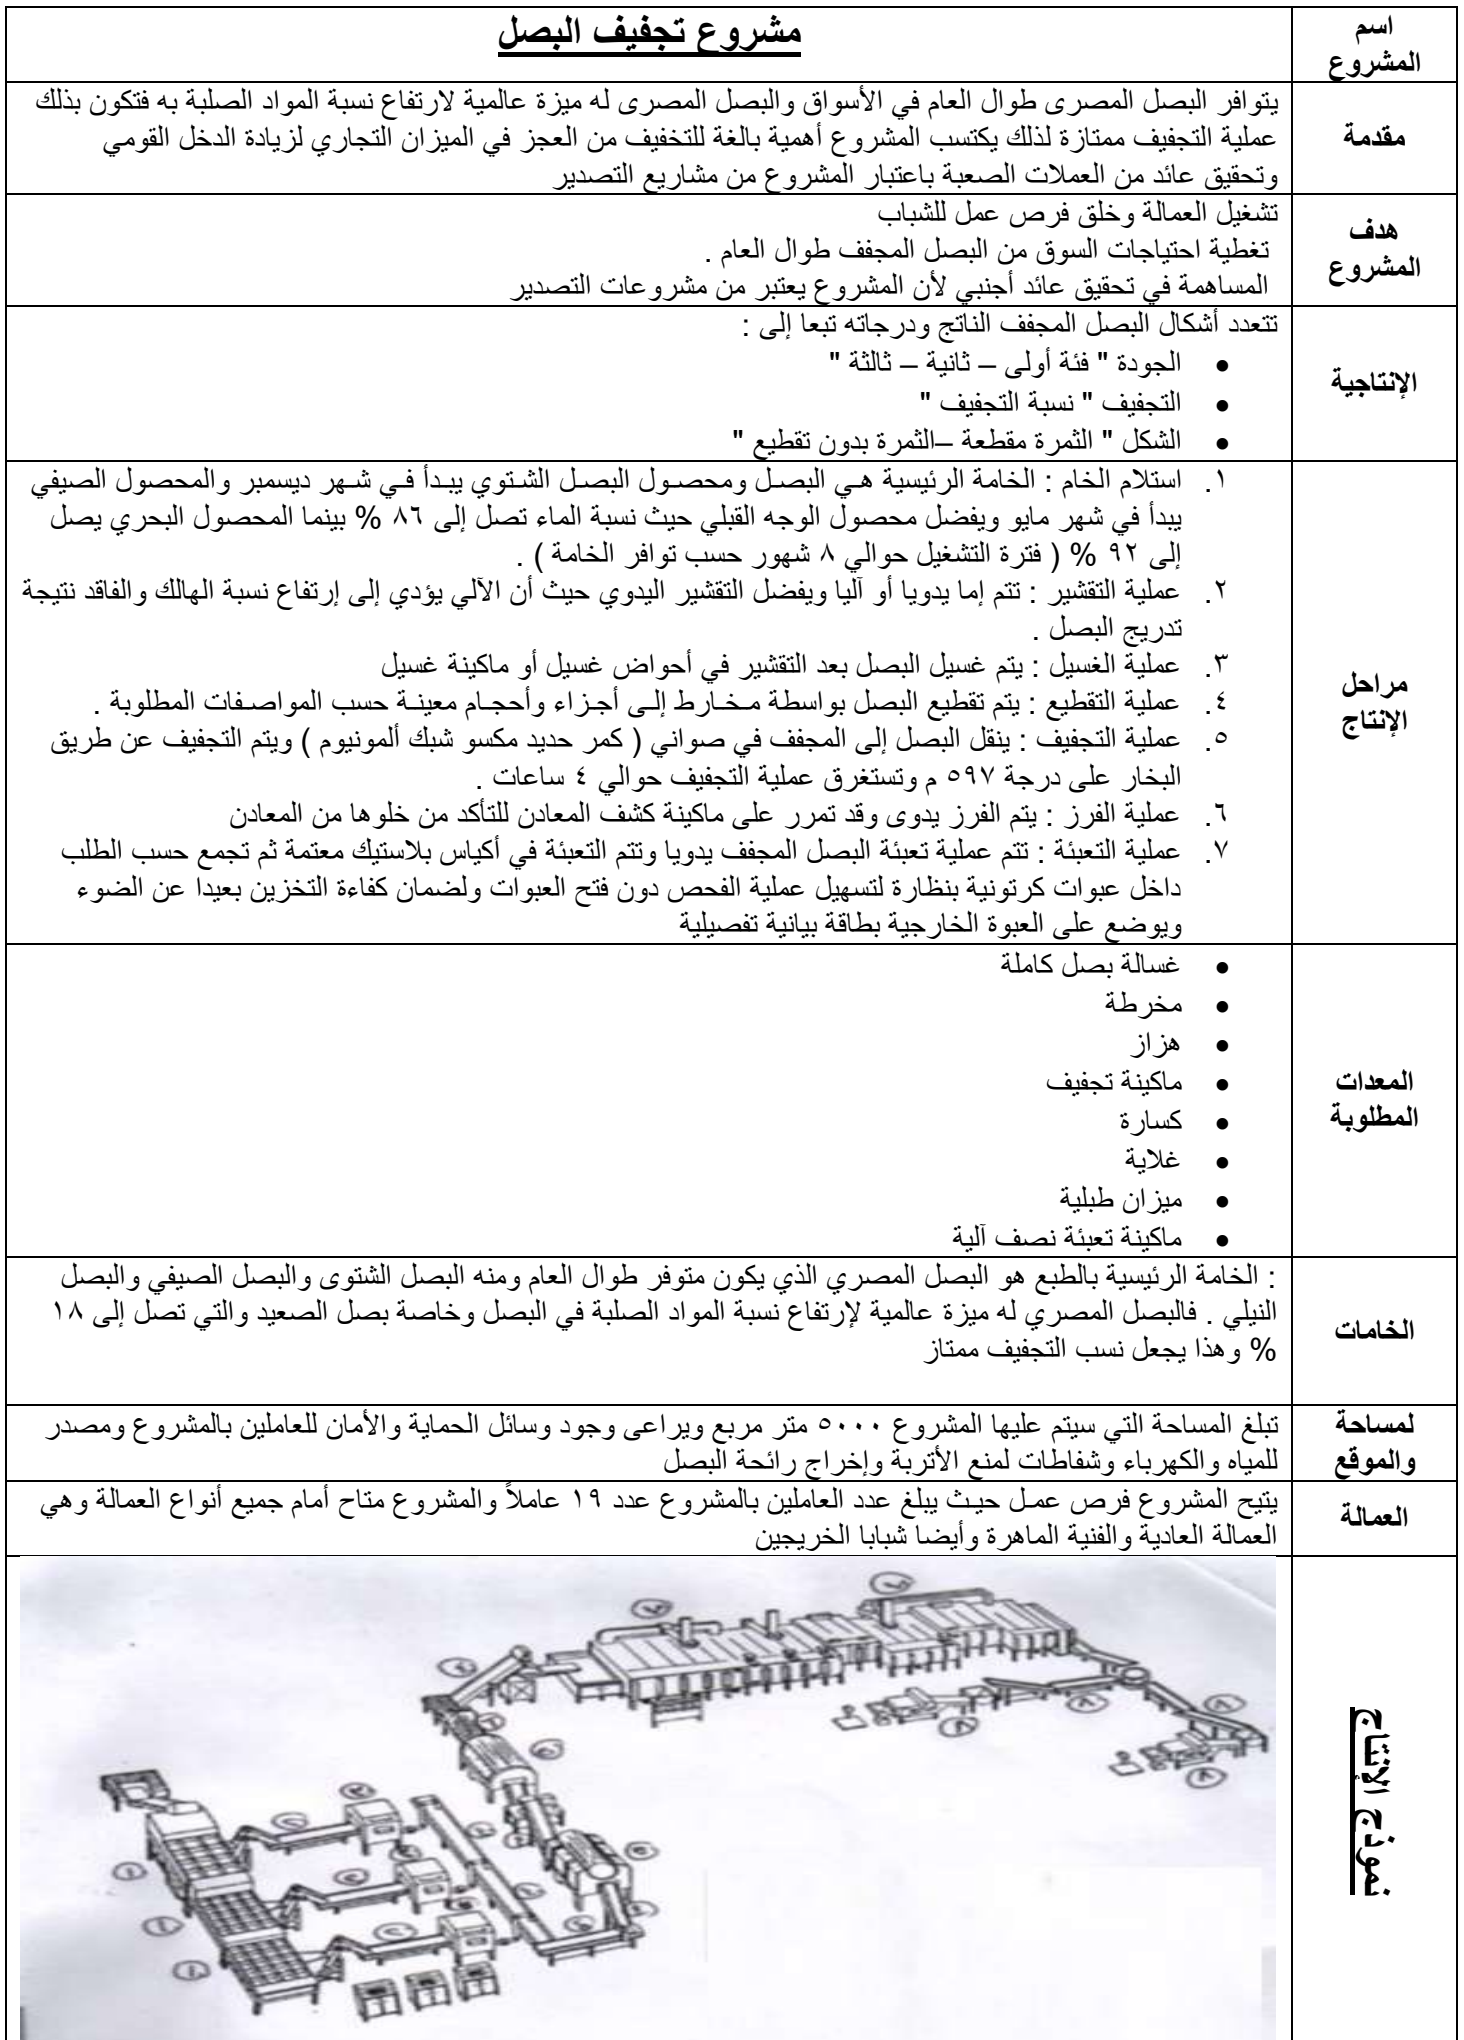 اسم المشروع
مشروع تجفيف البصل
مقدمة
يتوافر البصل المصرى طوال العام في الأسواق والبصل المصرى له ميزة عالمية لارتفاع نسبة المواد الصلبة به فتكون بذلك
عملية التجفيف ممتازة لذلك يكتسب المشروع أهمية بالغة للتخفيف من العجز في الميزان التجاري لزيادة الدخل القومي
وتحقيق عائد من العملات الصعبة باعتبار المشروع من مشاريع التصدير
هدف المشروع
تشغيل العمالة وخلق فرص عمل للشباب
تغطية احتياجات السوق من البصل المجفف طوال العام .
المساهمة في تحقيق عائد أجنبي لأن المشروع يعتبر من مشروعات التصدير
الإنتاجية
تتعدد أشكال البصل المجفف الناتج ودرجاته تبعا إلى :
• الجودة " فئة أولى – ثانية – ثالثة "
• التجفيف " نسبة التجفيف "
• الشكل " الثمرة مقطعة –الثمرة بدون تقطيع "
مراحل الإنتاج
١. استلام الخام : الخامة الرئيسية هي البصل ومحصول البصل الشتوي يبدأ في شهر ديسمبر والمحصول الصيفي
يبدأ في شهر مايو ويفضل محصول الوجه القبلي حيث نسبة الماء تصل إلى ٨٦ % بينما المحصول البحري يصل
إلى ٩٢ % ( فترة التشغيل حوالي ٨ شهور حسب توافر الخامة ) .
٢. عملية التقشير : تتم إما يدويا أو آليا ويفضل التقشير اليدوي حيث أن الآلي يؤدي إلى إرتفاع نسبة الهالك والفاقد نتيجة
تدريج البصل .
٣. عملية الغسيل : يتم غسيل البصل بعد التقشير في أحواض غسيل أو ماكينة غسيل
٤. عملية التقطيع : يتم تقطيع البصل بواسطة مخارط إلى أجزاء وأحجام معينة حسب المواصفات المطلوبة .
٥. عملية التجفيف : ينقل البصل إلى المجفف في صواني ( كمر حديد مكسو شبك ألمونيوم ) ويتم التجفيف عن طريق
البخار على درجة ٥٩٧ م وتستغرق عملية التجفيف حوالي ٤ ساعات .
٦. عملية الفرز : يتم الفرز يدوى وقد تمرر على ماكينة كشف المعادن للتأكد من خلوها من المعادن
٧. عملية التعبئة : تتم عملية تعبئة البصل المجفف يدويا وتتم التعبئة في أكياس بلاستيك معتمة ثم تجمع حسب الطلب
داخل عبوات كرتونية بنظارة لتسهيل عملية الفحص دون فتح العبوات ولضمان كفاءة التخزين بعيدا عن الضوء
ويوضع على العبوة الخارجية بطاقة بيانية تفصيلية
المعدات المطلوبة
• غسالة بصل كاملة
• مخرطة
• هزاز
• ماكينة تجفيف
• كسارة
• غلاية
• ميزان طبلية
• ماكينة تعبئة نصف آلية
الخامات
: الخامة الرئيسية بالطبع هو البصل المصري الذي يكون متوفر طوال العام ومنه البصل الشتوى والبصل الصيفي والبصل
النيلي . فالبصل المصري له ميزة عالمية لإرتفاع نسبة المواد الصلبة في البصل وخاصة بصل الصعيد والتي تصل إلى ١٨
% وهذا يجعل نسب التجفيف ممتاز
لمساحة والموقع
تبلغ المساحة التي سيتم عليها المشروع ٥٠٠٠ متر مربع ويراعى وجود وسائل الحماية والأمان للعاملين بالمشروع ومصدر
للمياه والكهرباء وشفاطات لمنع الأتربة وإخراج رائحة البصل
العمالة
يتيح المشروع فرص عمل حيث يبلغ عدد العاملين بالمشروع عدد ١٩ عاملاً والمشروع متاح أمام جميع أنواع العمالة وهي
العمالة العادية والفنية الماهرة وأيضا شبابا الخريجين
نموذج الإنتاج